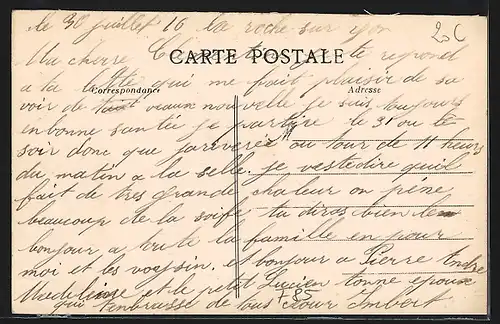 le 30 juillet 16 la roche sur yon
2,5C
Ma chère je te reponel
CARTE POSTALE
a ta lettre qui me fait plaisir de sa
Correspondance Adresse
voir de tout veaux nouvelle je suis toujours
en bonne santée je partire le 31 ou te
soir donc que jariverér au tour de 11 heurs
du matin a la selle. je veste dire quil
fait de tres grande chaleur on péne
beaucoup de la soife, tu diras bien le
bonjour a tute la famille en pour
moi et les voysin. et bonjour a Pierre Andre
Madeleine et le retst Lucien tonne époux
qui t'enbrasse de tous cœur Imbert
T.85